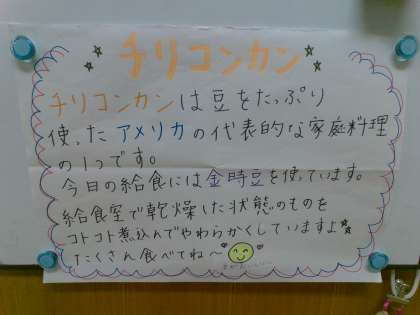 チリコンカン
チリコンカンは豆をたっぷり
使ったアメリカの代表的な家庭料理
の1つです。
今日の給食には金時豆を使っています。
給食室で乾燥した状態のものを
コトコト煮込んでやわらかくしていますよ
たくさん食べてね〜